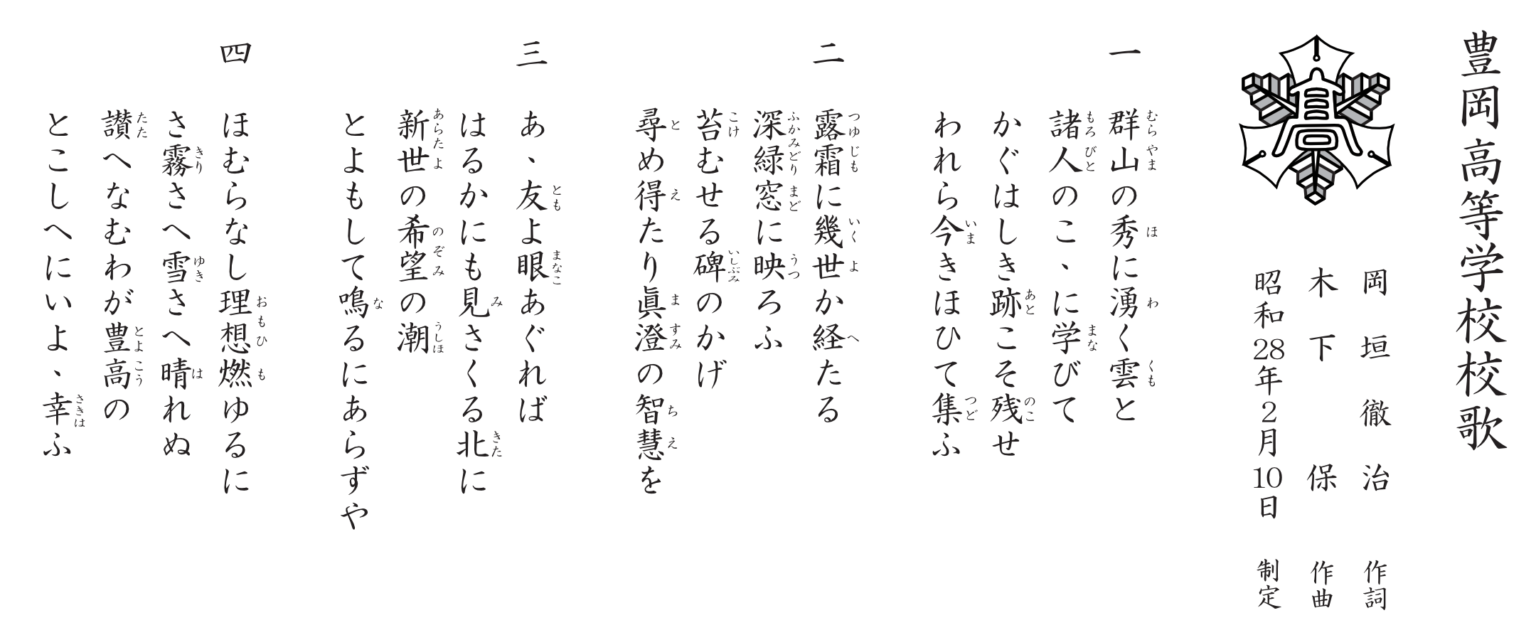 豊岡高等学校校歌
岡垣徹治 作詞
木下保 作曲
昭和28年2月10日 制定
高
一
群山の秀に湧く雲と
諸人のこゝに学びて
かぐはしき跡こそ残せ
われら今きほひて集ふ
二
露霜に幾世か経たる
深緑窓に映ろふ
苔むせる碑のかげ
尋め得たり眞澄の智慧を
三
あゝ友よ眼あぐれば
はるかにも見さくる北に
新世の希望の潮
とよもして鳴るにあらずや
四
ほむらなし理想燃ゆるに
さ霧さへ雪さへ晴れぬ
讃へなむわが豊高の
とこしへにいよゝ幸ふ